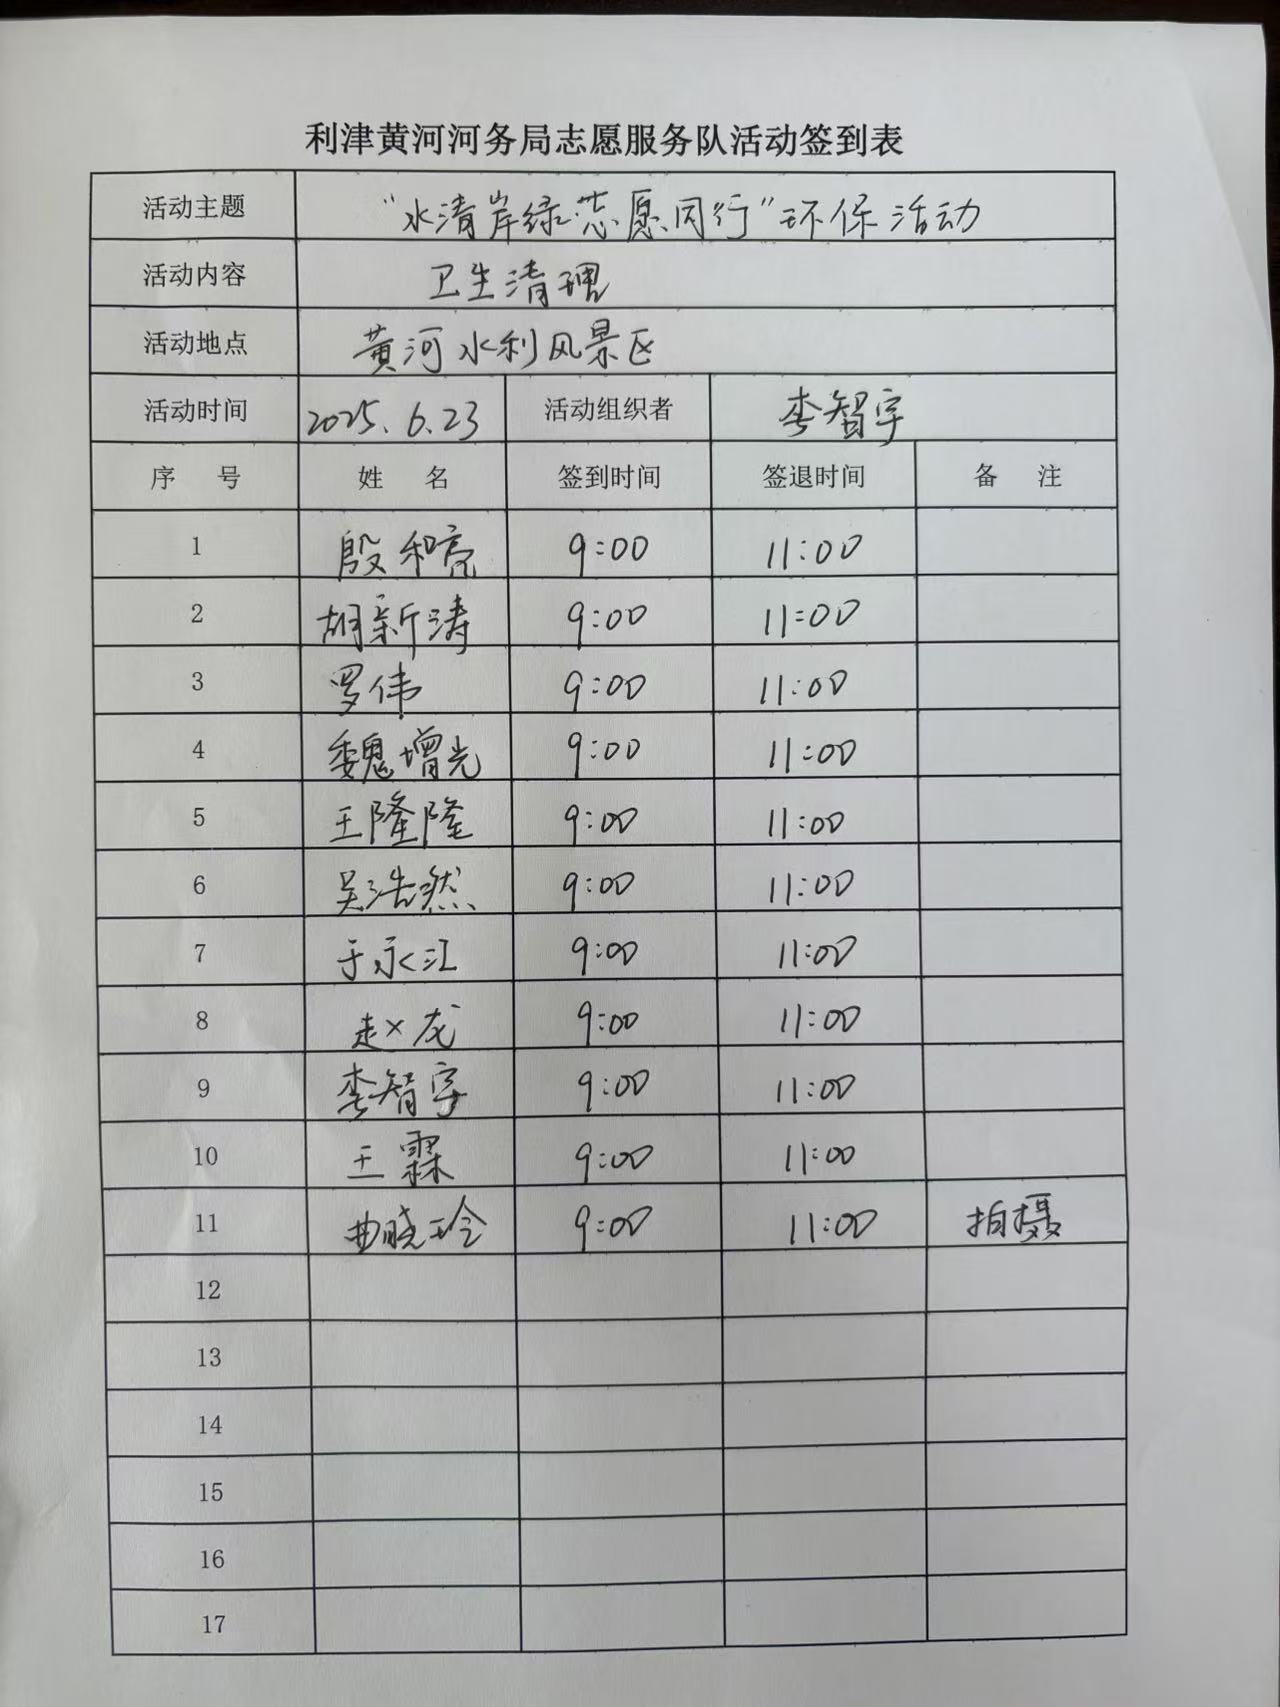 利津黄河河务局志愿服务队活动签到表
活动主题 “水清岸绿·志愿同行”环保活动
活动内容 卫生清理
活动地点 黄河水利风景区
活动时间 2025.6.23 活动组织者 李智宇
序 号 姓 名 签到时间 签退时间 备 注
1 殷和亮 9:00 11:00
2 胡新涛 9:00 11:00
3 罗伟 9:00 11:00
4 魏增光 9:00 11:00
5 王隆隆 9:00 11:00
6 吴浩然 9:00 11:00
7 于永江 9:00 11:00
8 赵龙 9:00 11:00
9 李智宇 9:00 11:00
10 王霖 9:00 11:00
11 曲晓玲 9:00 11:00 拍摄
12
13
14
15
16
17